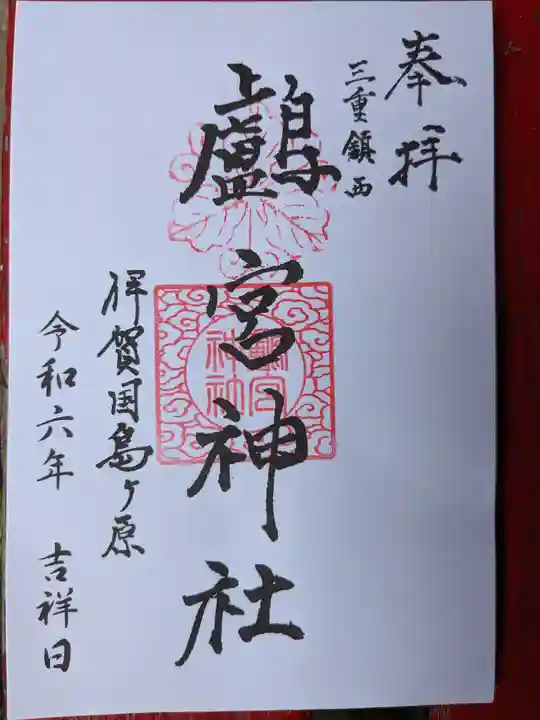 奉拝
三重鎮西
鸕宮神社
鸕宮
神社
伊賀国島ヶ原
令和六年 吉祥日